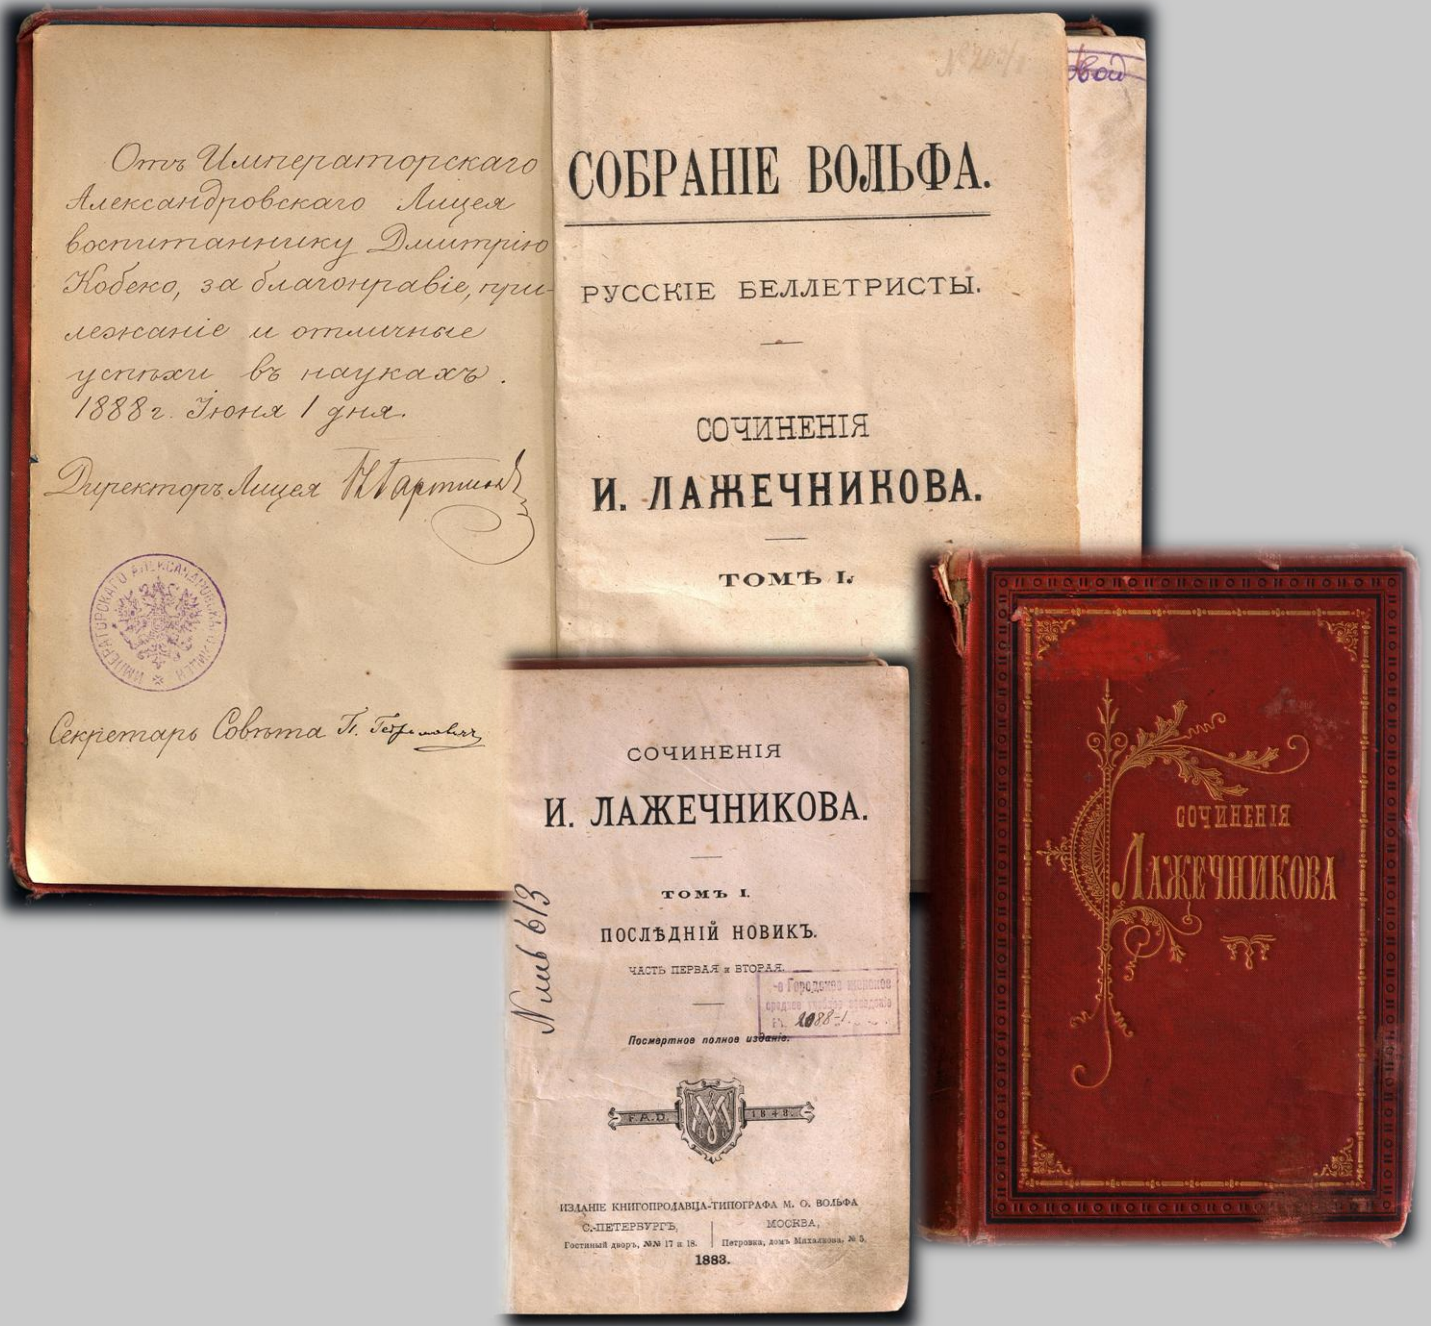 Отъ Императорскаго
Александровскаго Лицея
воспитаннику Дмитрію
Кобеко, за благонравіе, при-
лежаніе и отличные
успѣхи въ наукахъ.
1888 г. Іюня 1 дня.
Директоръ Лицея
ИМПЕРАТОРСКАГО АЛЕКСАНДРОВСКАГО ЛИЦЕЯ
Секретарь Совѣта П.
СОБРАНІЕ ВОЛЬФА.
РУССКІЕ БЕЛЛЕТРИСТЫ.
СОЧИНЕНІЯ
И. ЛАЖЕЧНИКОВА.
ТОМЪ I.
СОЧИНЕНІЯ
И. ЛАЖЕЧНИКОВА.
ТОМЪ I.
ПОСЛѢДНІЙ НОВИКЪ.
ЧАСТЬ ПЕРВАЯ и ВТОРАЯ.
613
2088-1.
Посмертное полное изданіе.
F.A.D. 1848.
ИЗДАНІЕ КНИГОПРОДАВЦА-ТИПОГРАФА М. О. ВОЛЬФА
С.-ПЕТЕРБУРГЪ,
Гостиный дворъ, №№ 17 и 18.
МОСКВА,
Петровка, домъ Михалкова, № 5.
1883.
СОЧИНЕНІЯ
ЛАЖЕЧНИКОВА